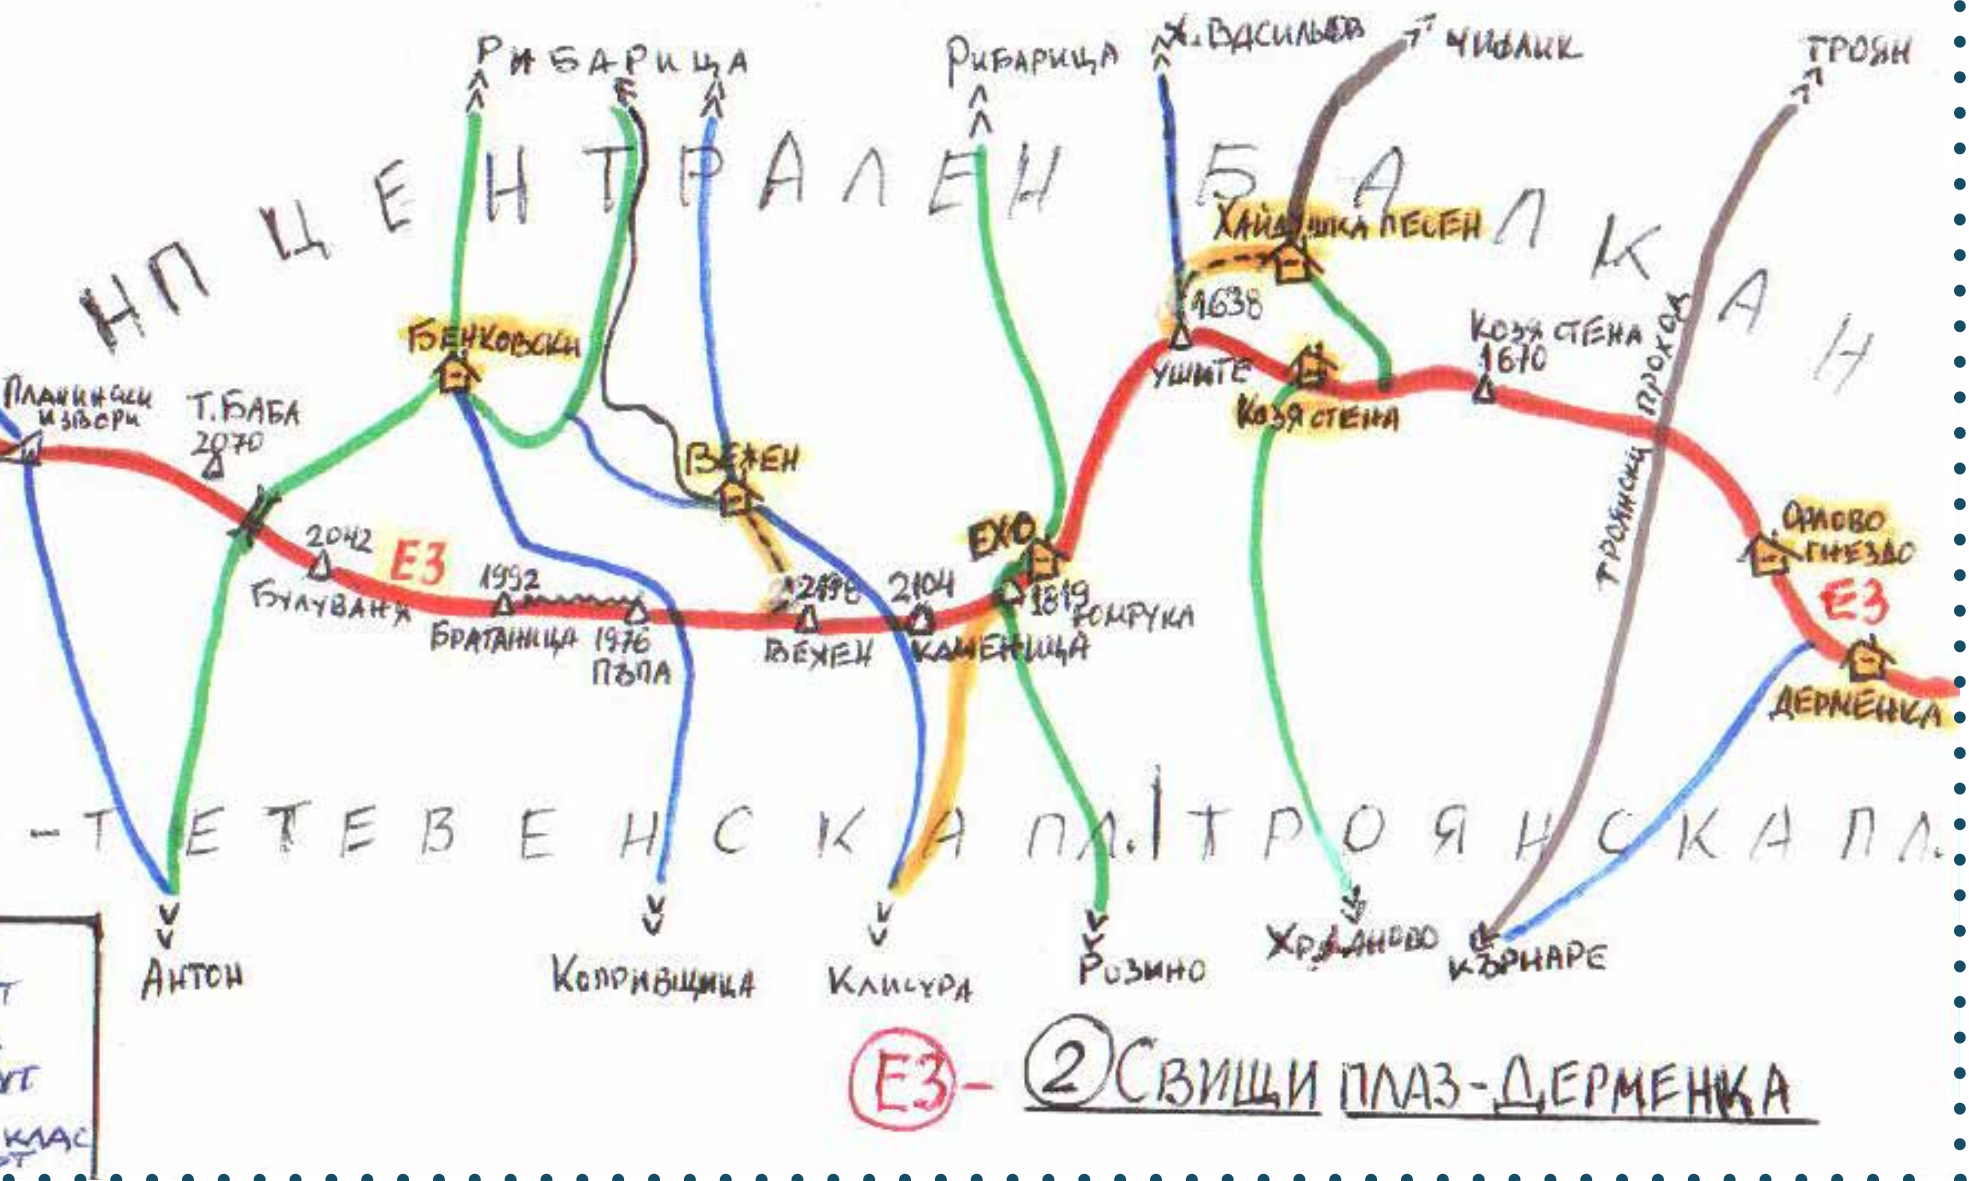 РИБАРИЦА
РИБАРИЦА
Х.ВАСИЛЬОВ
ЧИФЛИК
ТРОЯН
НП ЦЕНТРАЛЕН БАЛКАН
ХАЙДУШКА ПЕСЕН
1638
УШИТЕ
КОЗЯ СТЕНА
1670
КОЗЯ СТЕНА
ТРОЯНСКИ ПРОХОД
БЕНКОВСКИ
ПЛАНИНСКИ
ИЗВОРИ
Т.БАБА
2070
ВЕЖЕН
ЕХО
ОРЛОВО
ГНЕЗДО
2042
БУЛУВАНЯ
E3
1992
БРАТАНИЦА
1976
ПЪПА
2198
ВЕЖЕН
2104
КАМЕНИЦА
1819
ГОМРУКА
E3
ДЕРМЕНКА
-ТЕТЕВЕНСКА ПЛ.|ТРОЯНСКА ПЛ.
АНТОН
КОПРИВЩИЦА
КЛИСУРА
РОЗИНО
ХРДАНОВО
КЪРНАРЕ
Т
УТ
КЛАС
ОТ
E3 - 2 СВИЩИ ПЛАЗ-ДЕРМЕНКА